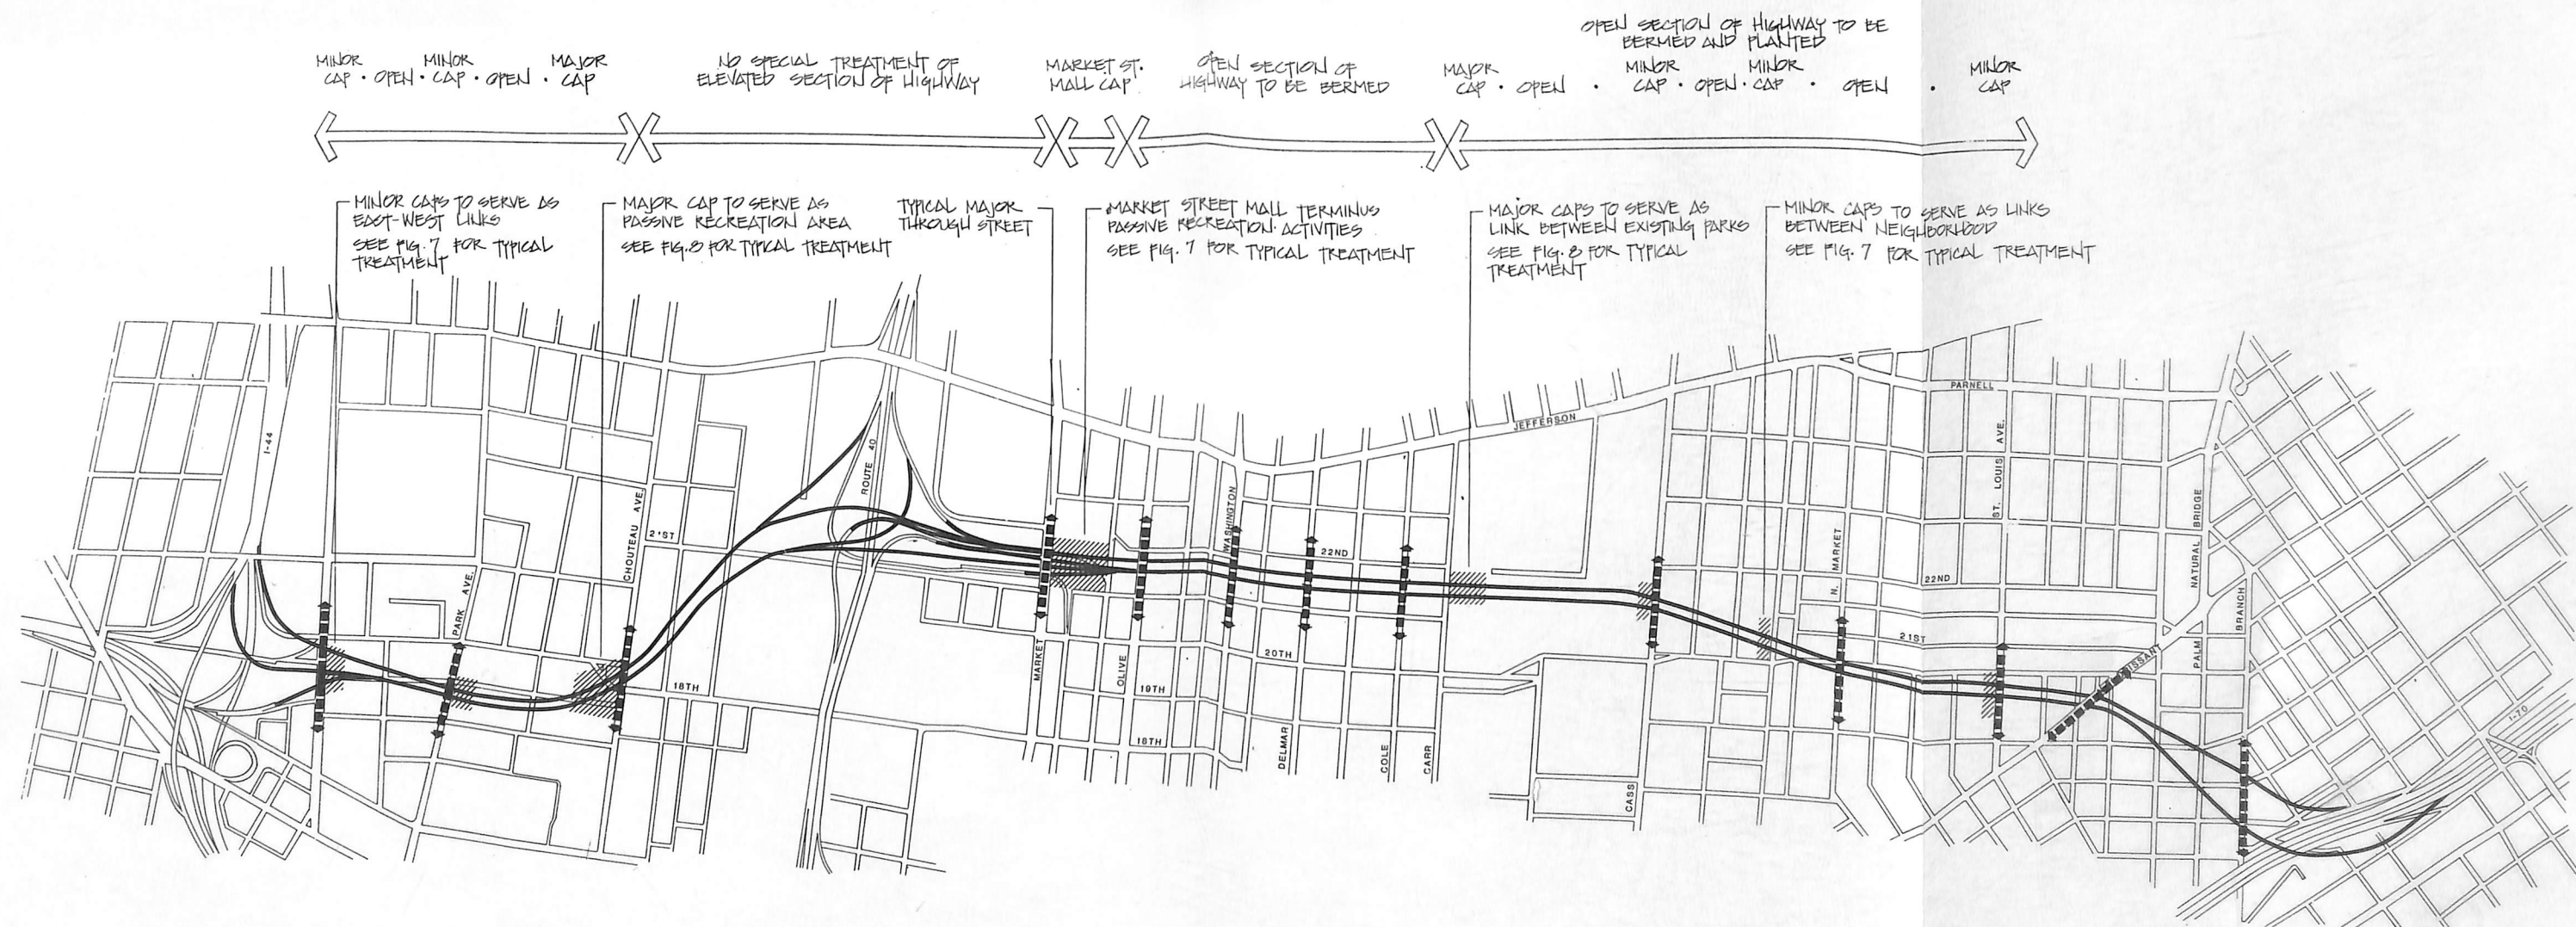 MINOR
CAP · OPEN · 
MINOR
CAP · OPEN · 
MAJOR
CAP
NO SPECIAL TREATMENT OF
ELEVATED SECTION OF HIGHWAY
MARKET ST.
MALL CAP
OPEN SECTION OF
HIGHWAY TO BE BERMED
OPEN SECTION OF HIGHWAY TO BE
BERMED AND PLANTED
MAJOR
CAP · OPEN ·
MINOR
CAP · OPEN ·
MINOR
CAP · OPEN ·
MINOR
CAP
MINOR CAPS TO SERVE AS
EAST-WEST LINKS
SEE FIG. 7 FOR TYPICAL
TREATMENT
MAJOR CAP TO SERVE AS
PASSIVE RECREATION AREA
SEE FIG. 8 FOR TYPICAL TREATMENT
TYPICAL MAJOR
THROUGH STREET
MARKET STREET MALL TERMINUS
PASSIVE RECREATION ACTIVITIES
SEE FIG. 7 FOR TYPICAL TREATMENT
MAJOR CAPS TO SERVE AS
LINK BETWEEN EXISTING PARKS
SEE FIG. 8 FOR TYPICAL
TREATMENT
MINOR CAPS TO SERVE AS LINKS
BETWEEN NEIGHBORHOOD
SEE FIG. 7 FOR TYPICAL TREATMENT
I-44
PARK AVE.
CHOUTEAU AVE.
2'ST
18TH
ROUTE 40
MARKET
OLIVE
19TH
18TH
WASHINGTON
22ND
20TH
DELMAR
COLE
CARR
JEFFERSON
CASS
N. MARKET
PARNELL
ST. LOUIS AVE.
22ND
21ST
NATURAL BRIDGE
PALM
BRANCH
I-70